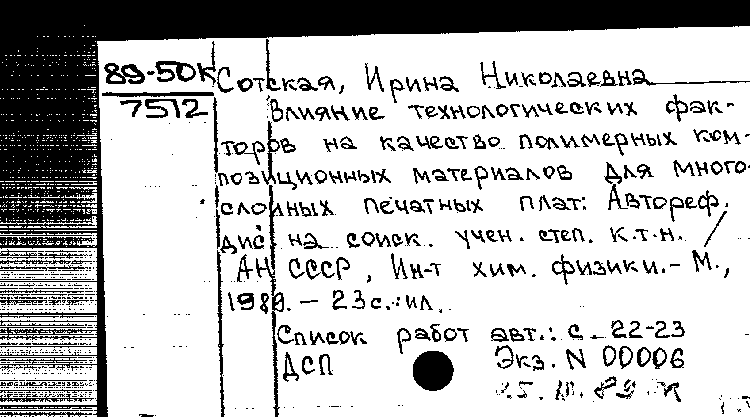 89-50К
7512
Сотская, Ирина Николаевна
Влияние технологических фак-
торов на качество полимерных ком-
позиционных материалов для много-
слойных печатных плат: Автореф.
дис. на соиск. учен. степ. к.т.н. /
АН СССР, Ин-т хим. физики.- М.,
1989. - 23с.:ил.
Список работ авт.: с. 22-23
ДСП Экз. N 00006